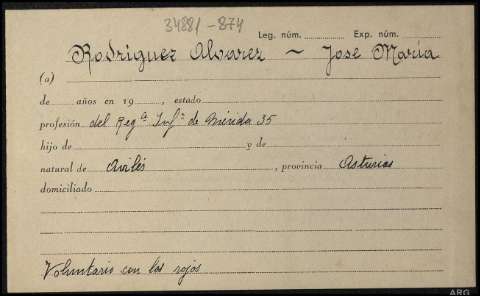 34881-874
Leg. núm. Exp. núm.
Rodriguez Alvarez ~ Jose María
(a)
de años en 19 , estado
profesión del Regº Infª de Mérida 35
hijo de y de
natural de Avilés , provincia Asturias
domiciliado
Voluntario con los rojos
ARG